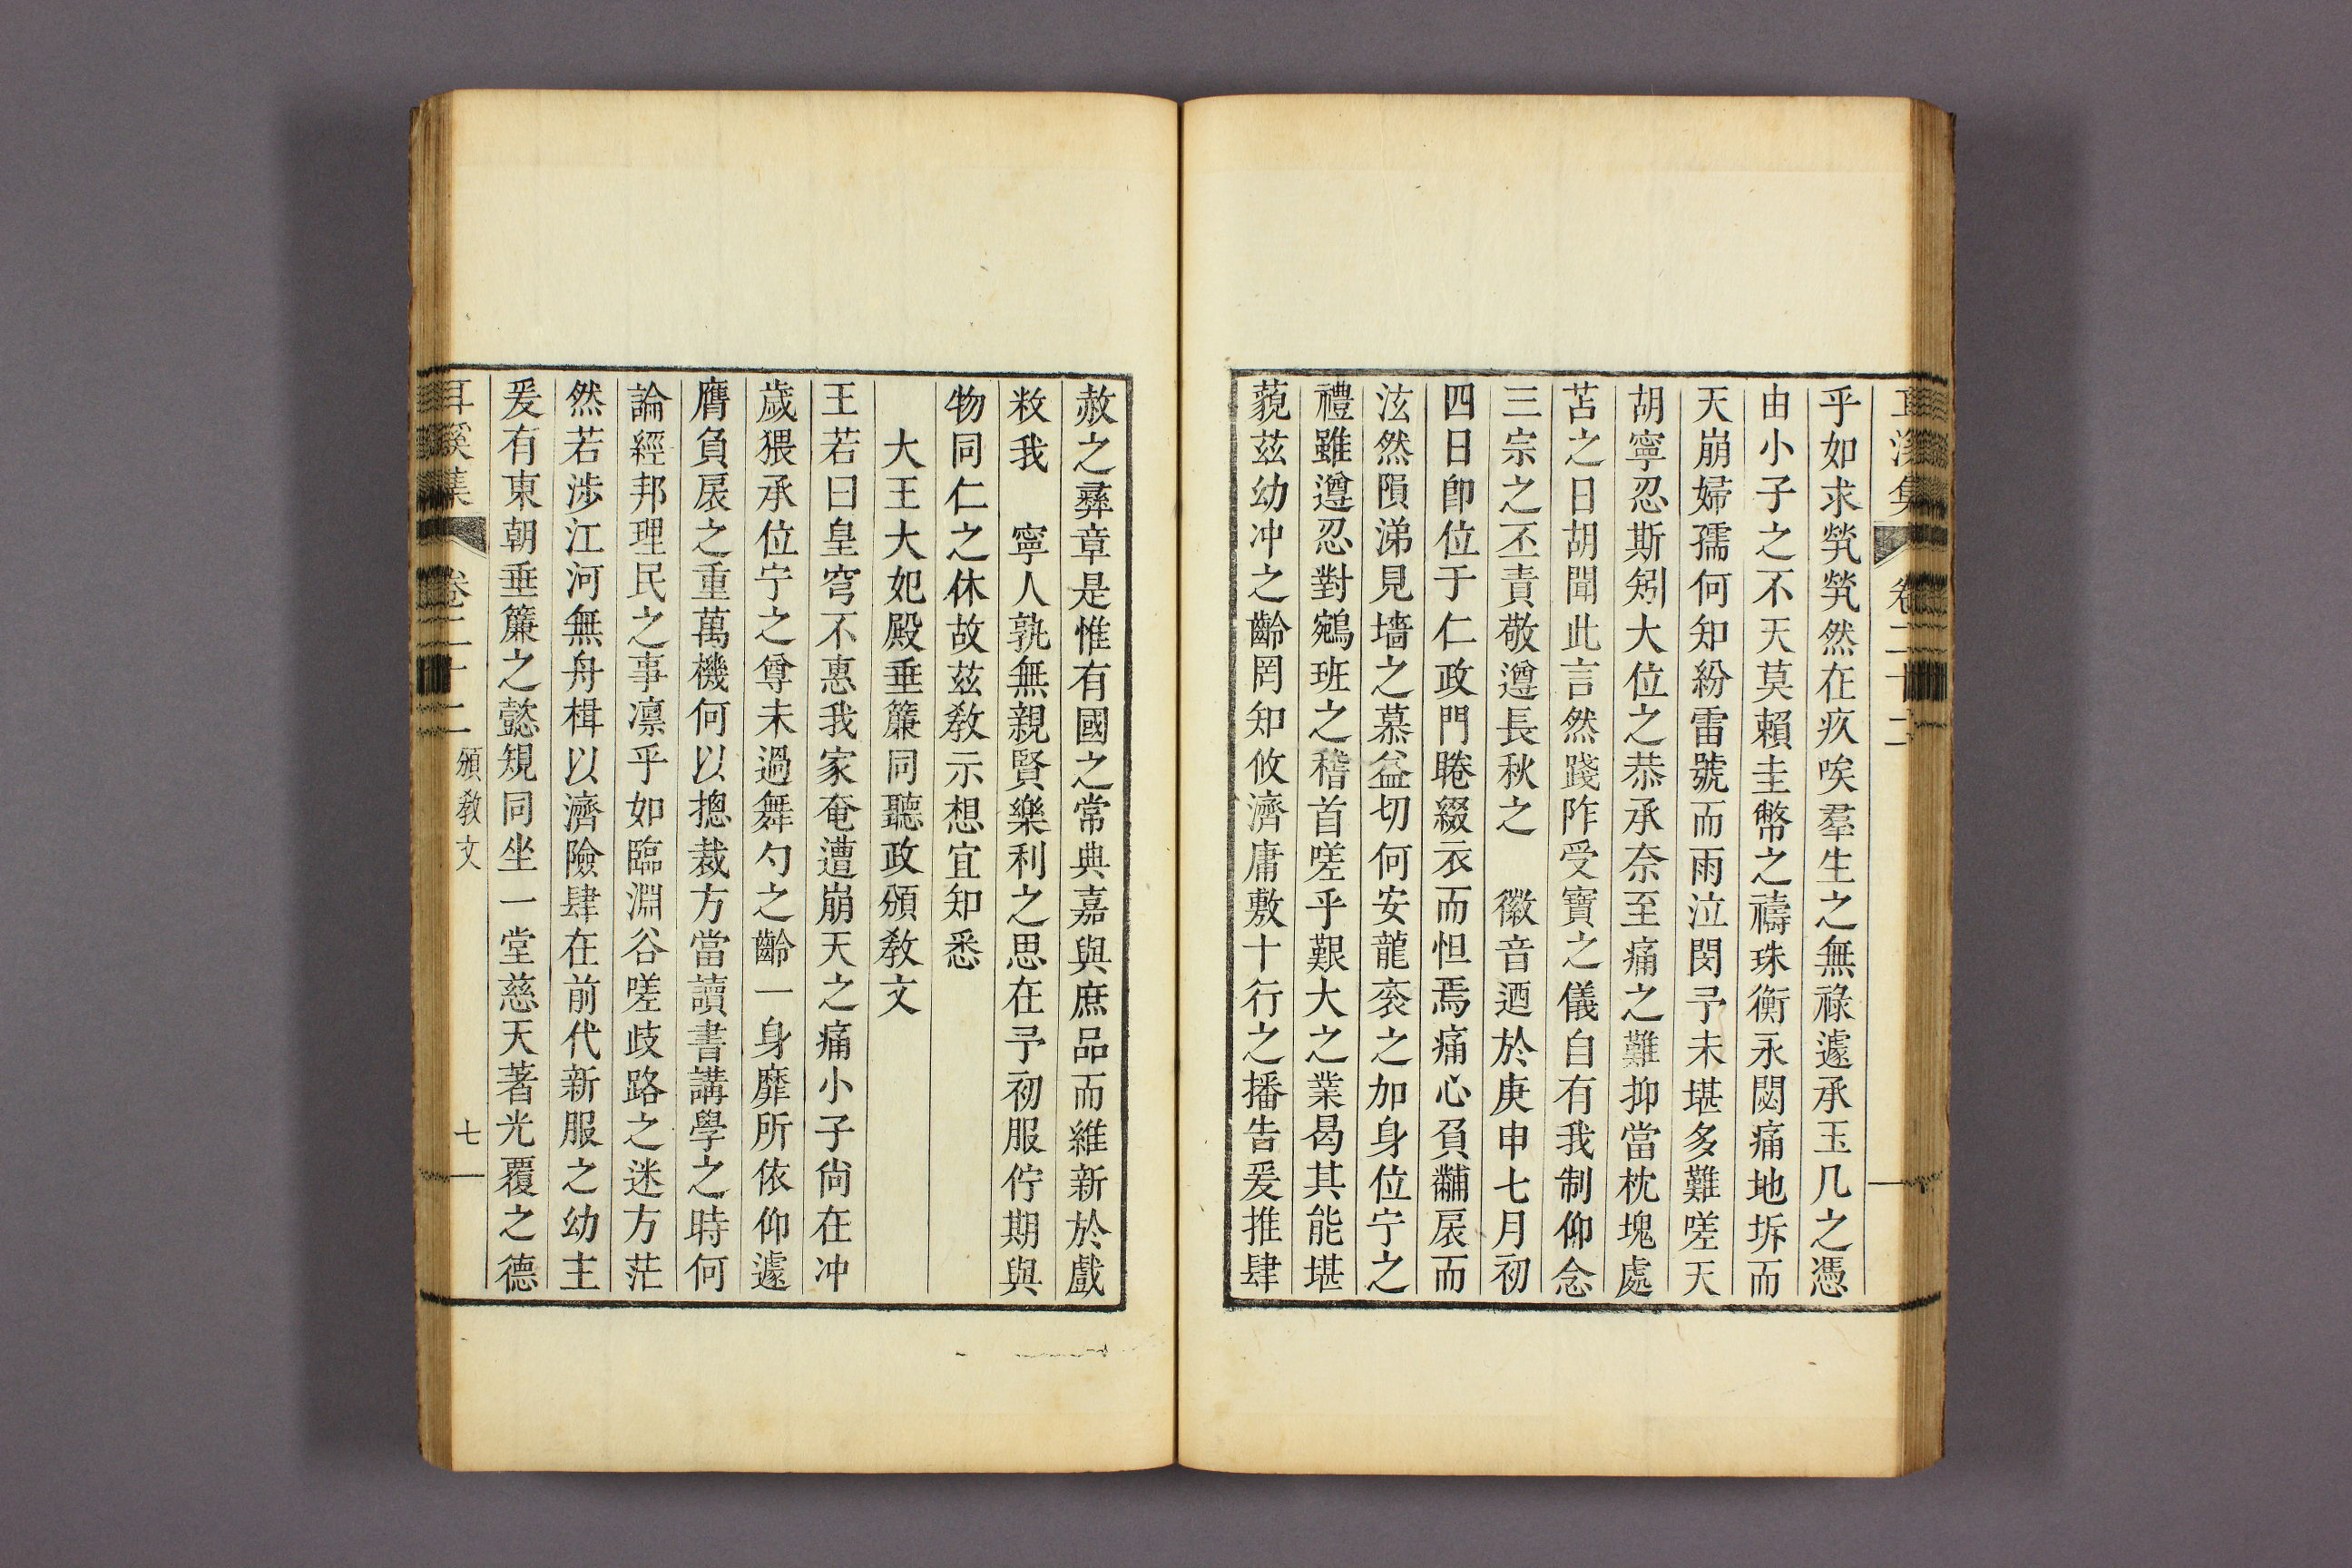 耳溪集 卷二十二
乎如求煢煢然在疚唉羣生之無祿遽承玉几之憑
由小子之不天莫賴圭幣之禱珠衡永閟痛地坼而
天崩婦孺何知紛雷號而雨泣閔予未堪多難嗟天
胡寧忍斯矧大位之恭承奈至痛之難抑當枕塊處
苫之日胡聞此言然踐阼受寶之儀自有我制仰念
三宗之丕責敬遵長秋之 徽音迺於庚申七月初
四日卽位于仁政門睠綴衣而怛焉痛心負黼扆而
泫然隕涕見墻之慕益切何安龍衮之加身位宁之
禮雖遵忍對鵷班之稽首嗟乎艱大之業曷其能堪
藐玆幼冲之齡罔知攸濟庸敷十行之播告爰推肆
赦之彝章是惟有國之常典嘉與庶品而維新於戲
敉我 寧人孰無親賢樂利之思在予初服佇期與
物同仁之休故玆敎示想宜知悉
大王大妃殿垂簾同聽政頒敎文
王若曰皇穹不惠我家奄遭崩天之痛小子尙在冲
歲猥承位宁之尊未過舞勺之齡一身靡所依仰遽
膺負扆之重萬機何以摠裁方當讀書講學之時何
論經邦理民之事凛乎如臨淵谷嗟歧路之迷方茫
然若涉江河無舟楫以濟險肆在前代新服之幼主
爰有東朝垂簾之懿規同坐一堂慈天著光覆之德
耳溪集 卷二十二 頒敎文 七